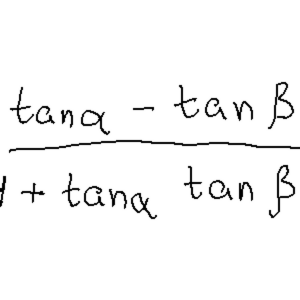 tanα − tan β
1 + tanα tan β